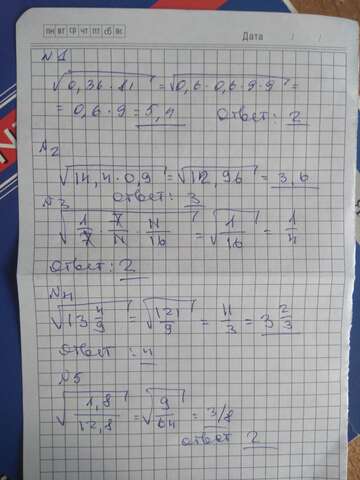 пн вт ср чт пт сб вс
Дата
№1
√0,36 · 81 = √0,6 · 0,6 · 9 · 9 =
= 0,6 · 9 = 5,4 Ответ: 2
№2
√14,4 · 0,9 = √12,96 = 3,6
Ответ: 3
№3
√1/7 · 7/11 · 11/16 = √1/16 = 1/4
Ответ: 2
№4
√13 4/9 = √121/9 = 11/3 = 3 2/3
Ответ: 4
№5
√1,8/12,8 = √9/64 = 3/8
Ответ 2